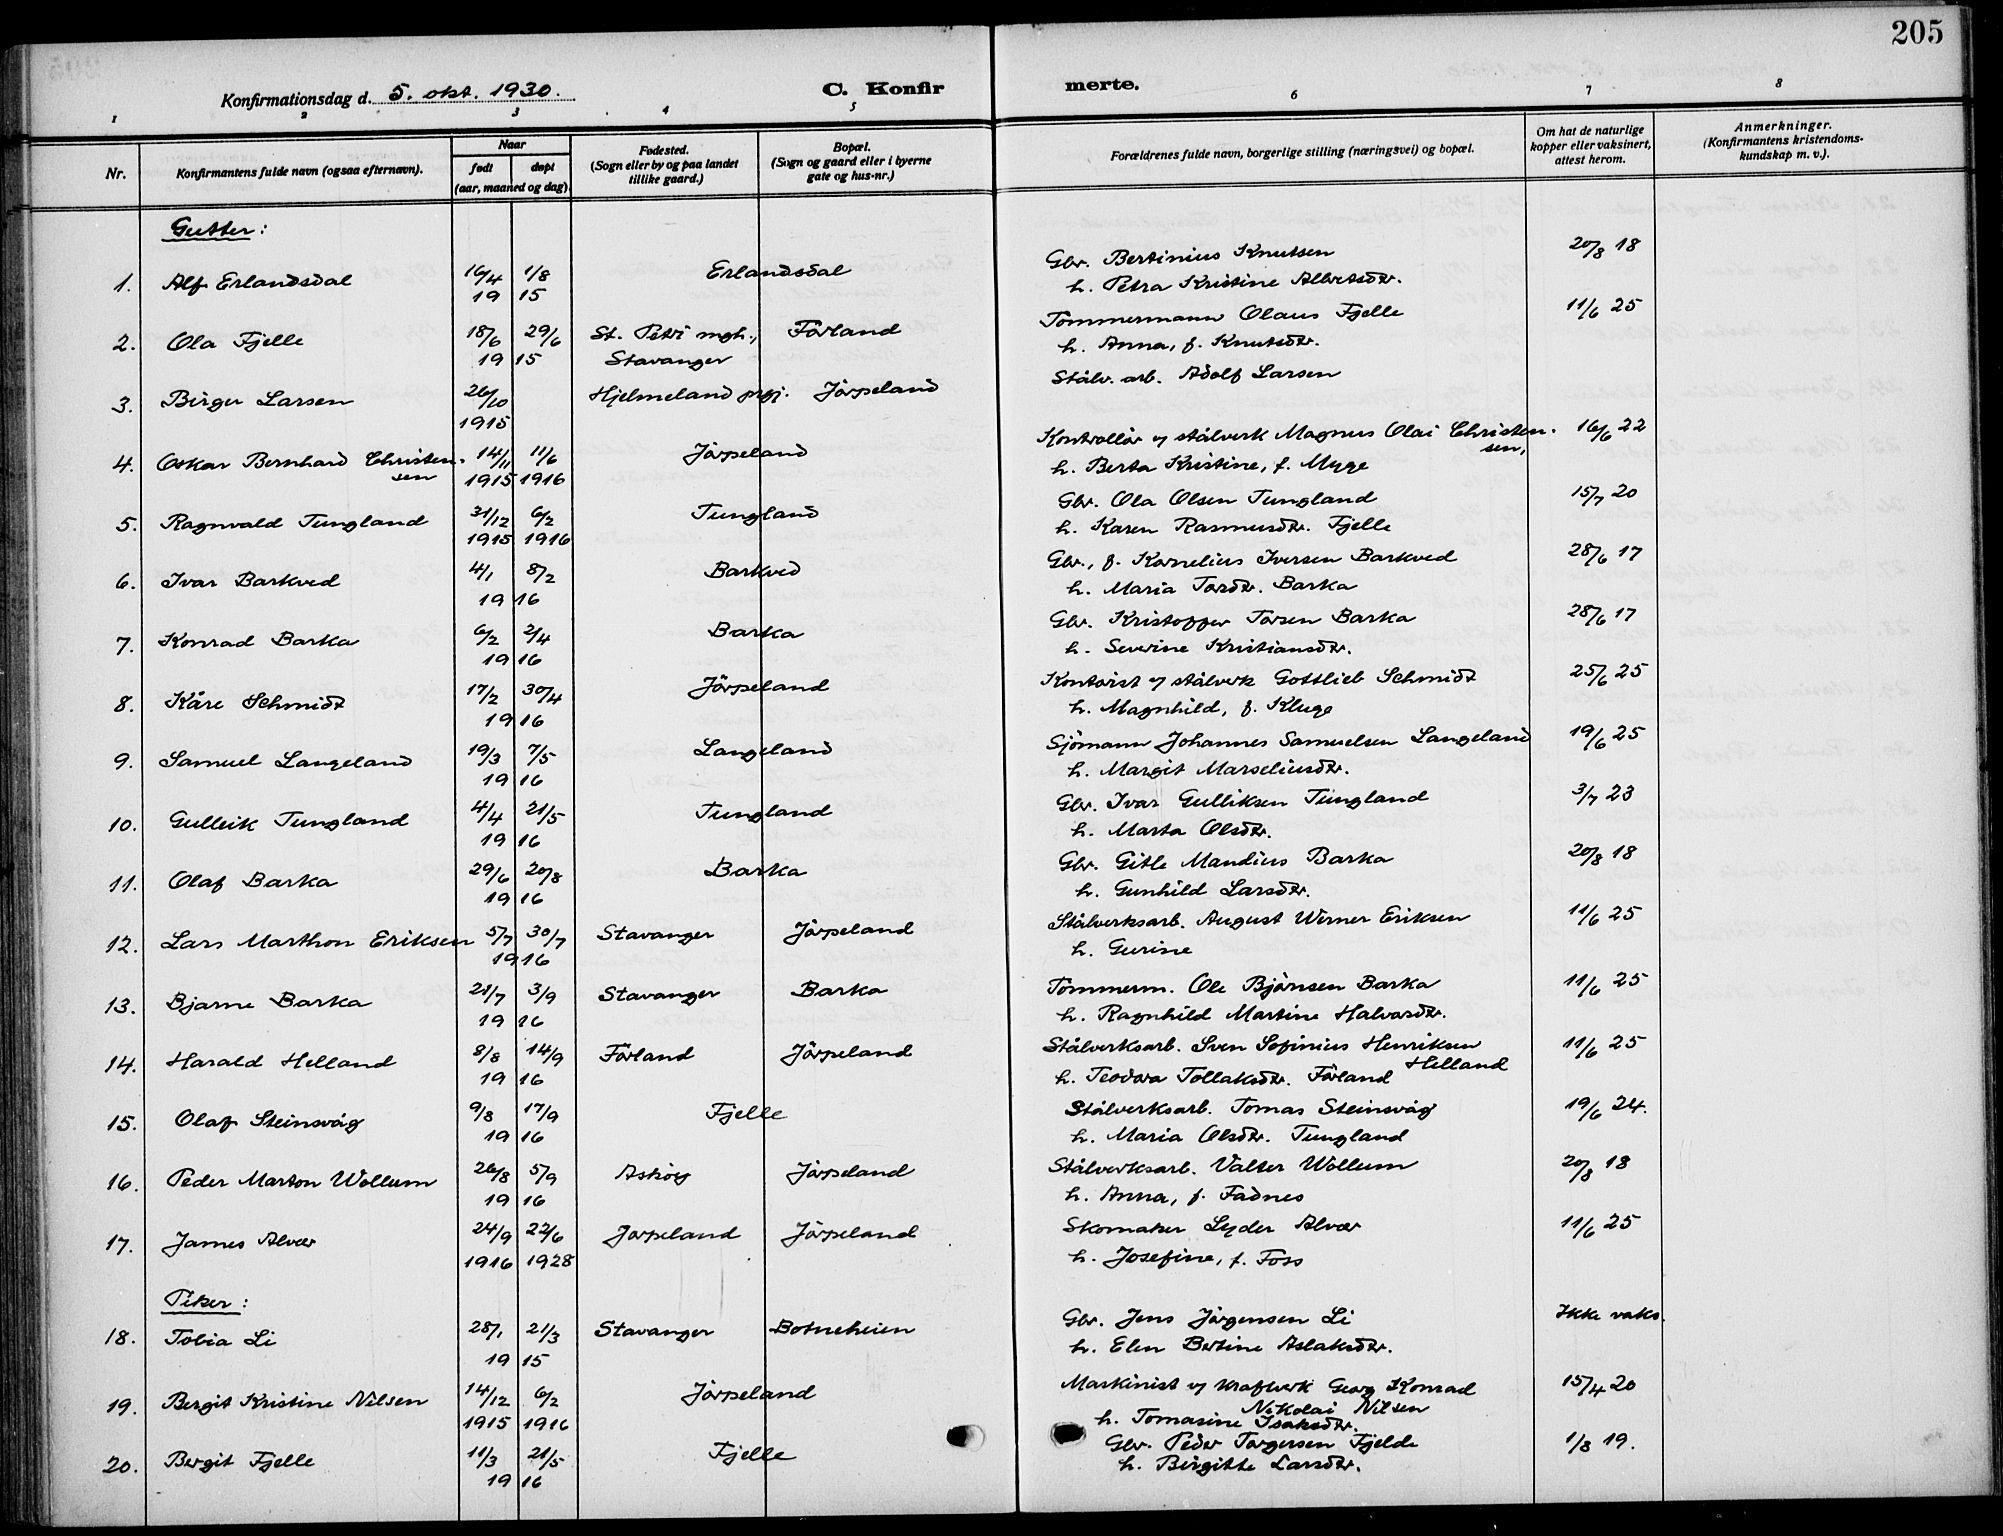 205
Konfirmationsdag d. 5. okt. 1930. C. Konfir merte.
1 2 3 4 5 6 7 8
Nr. Konfirmantens fulde navn (ogsaa efternavn). Naar født døpt (aar, maaned og dag). Fødested. (Sogn eller by og paa landet tillike gaard.) Bopæl. (Sogn og gaard eller i byerne gate og hus-nr.) Forældrenes fulde navn, borgerlige stilling (næringsvei) og bopæl. Om hat de naturlige kopper eller vaksinert, attest herom. Anmerkninger. (Konfirmantens kristendomskundskap m. v.).
Gutter:
1. Alf Erlandsdal 16/4 1/8 Erlandsdal Gbr. Bertinius Knutsen 20/8 18
19 15 h. Petra Kristine Albretsdtr.
2. Ola Fjelle 18/6 29/6 St. Petri mgh., Førland Tømmermann Olaus Fjelle 11/6 25
19 15 Stavanger h. Anna, f. Knutsdtr.
3. Birger Larsen 26/10 Hjelmeland prgj. Jørpeland Stålv. arb. Adolf Larsen
1915
4. Oskar Bernhard Christen- 14/11 11/6 Jørpeland Kontrollør v/ stålverk Magnus Olai Christen- 16/6 22
sen 1915 1916 sen,
h. Berta Kristine, f. Myge
5. Ragnvald Tungland 31/12 6/2 Tungland Gbr. Ola Olsen Tungland 15/7 20
1915 1916 h. Karen Rasmusdtr. Fjelle
6. Ivar Barkved 4/1 8/2 Barkved Gbr., f. Kornelius Iversen Barkved 28/6 17
19 16 h. Maria Torsdtr. Barka
7. Konrad Barka 6/2 2/4 Barka Gbr. Kristoffer Torsen Barka 28/6 17
19 16 h. Severine Kristiansdtr.
8. Kåre Schmidt 17/2 30/4 Jørpeland Kontorist v/ stålverk Gottlieb Schmidt 25/6 25
19 16 h. Magnhild, f. Kluge
9. Samuel Langeland 19/3 7/5 Langeland Sjømann Johannes Samuelsen Langeland 19/6 25
19 16 h. Margit Marseliusdtr.
10. Gulleik Tungland 4/4 21/5 Tungland Gbr. Ivar Gulliksen Tungland 3/7 23
19 16 h. Marta Olsdtr.
11. Olaf Barka 29/6 20/8 Barka Gbr. Gitle Mandius Barka 20/8 18
19 16 h. Gunhild Larsdtr.
12. Lars Marthon Eriksen 5/7 30/7 Stavanger Jørpeland Stålverksarb. August Werner Eriksen 11/6 25
19 16 h. Gurine
13. Bjarne Barka 21/7 3/9 Stavanger Barka Tømmerm. Ole Bjørnsen Barka 11/6 25
19 16 h. Ragnhild Martine Halvorsdtr.
14. Harald Helland 8/8 14/9 Førland Jørpeland Stålverksarb. Sven Sofinius Henriksen 11/6 25
19 16 Helland
h. Teodora Tollaksdtr. Førland
15. Olaf Steinsvåg 9/8 17/9 Fjelle Stålverksarb. Tomas Steinsvåg 19/6 24.
19 16 h. Maria Olsdtr. Tungland
16. Peder Marton Wollum 26/8 5/9 Askøy Jørpeland Stålverksarb. Valter Wollum 20/8 18
19 16 h. Anna, f. Fadnes
17. James Alvær 24/9 22/6 Jørpeland Jørpeland Skomaker Lyder Alvær 11/6 25
1916 1928 h. Josefine, f. Foss
Piker:
18. Tobia Li 28/1 21/3 Stavanger Botneheien Gbr. Jens Jørgensen Li Ikke vaks.
19 15 h. Elen Bertine Aslaksdtr.
19. Bergit Kristine Nilsen 14/12 6/2 Jørpeland Maskinist v/ kraftverk Georg Konrad 15/4 20
1915 1916 Nikolai Nilsen
h. Tomasine Isaksdtr.
20. Bergit Fjelle 11/3 21/5 Fjelle Gbr. Peder Torgersen Fjelde 1/8 19.
19 16 h. Birgitte Larsdtr.